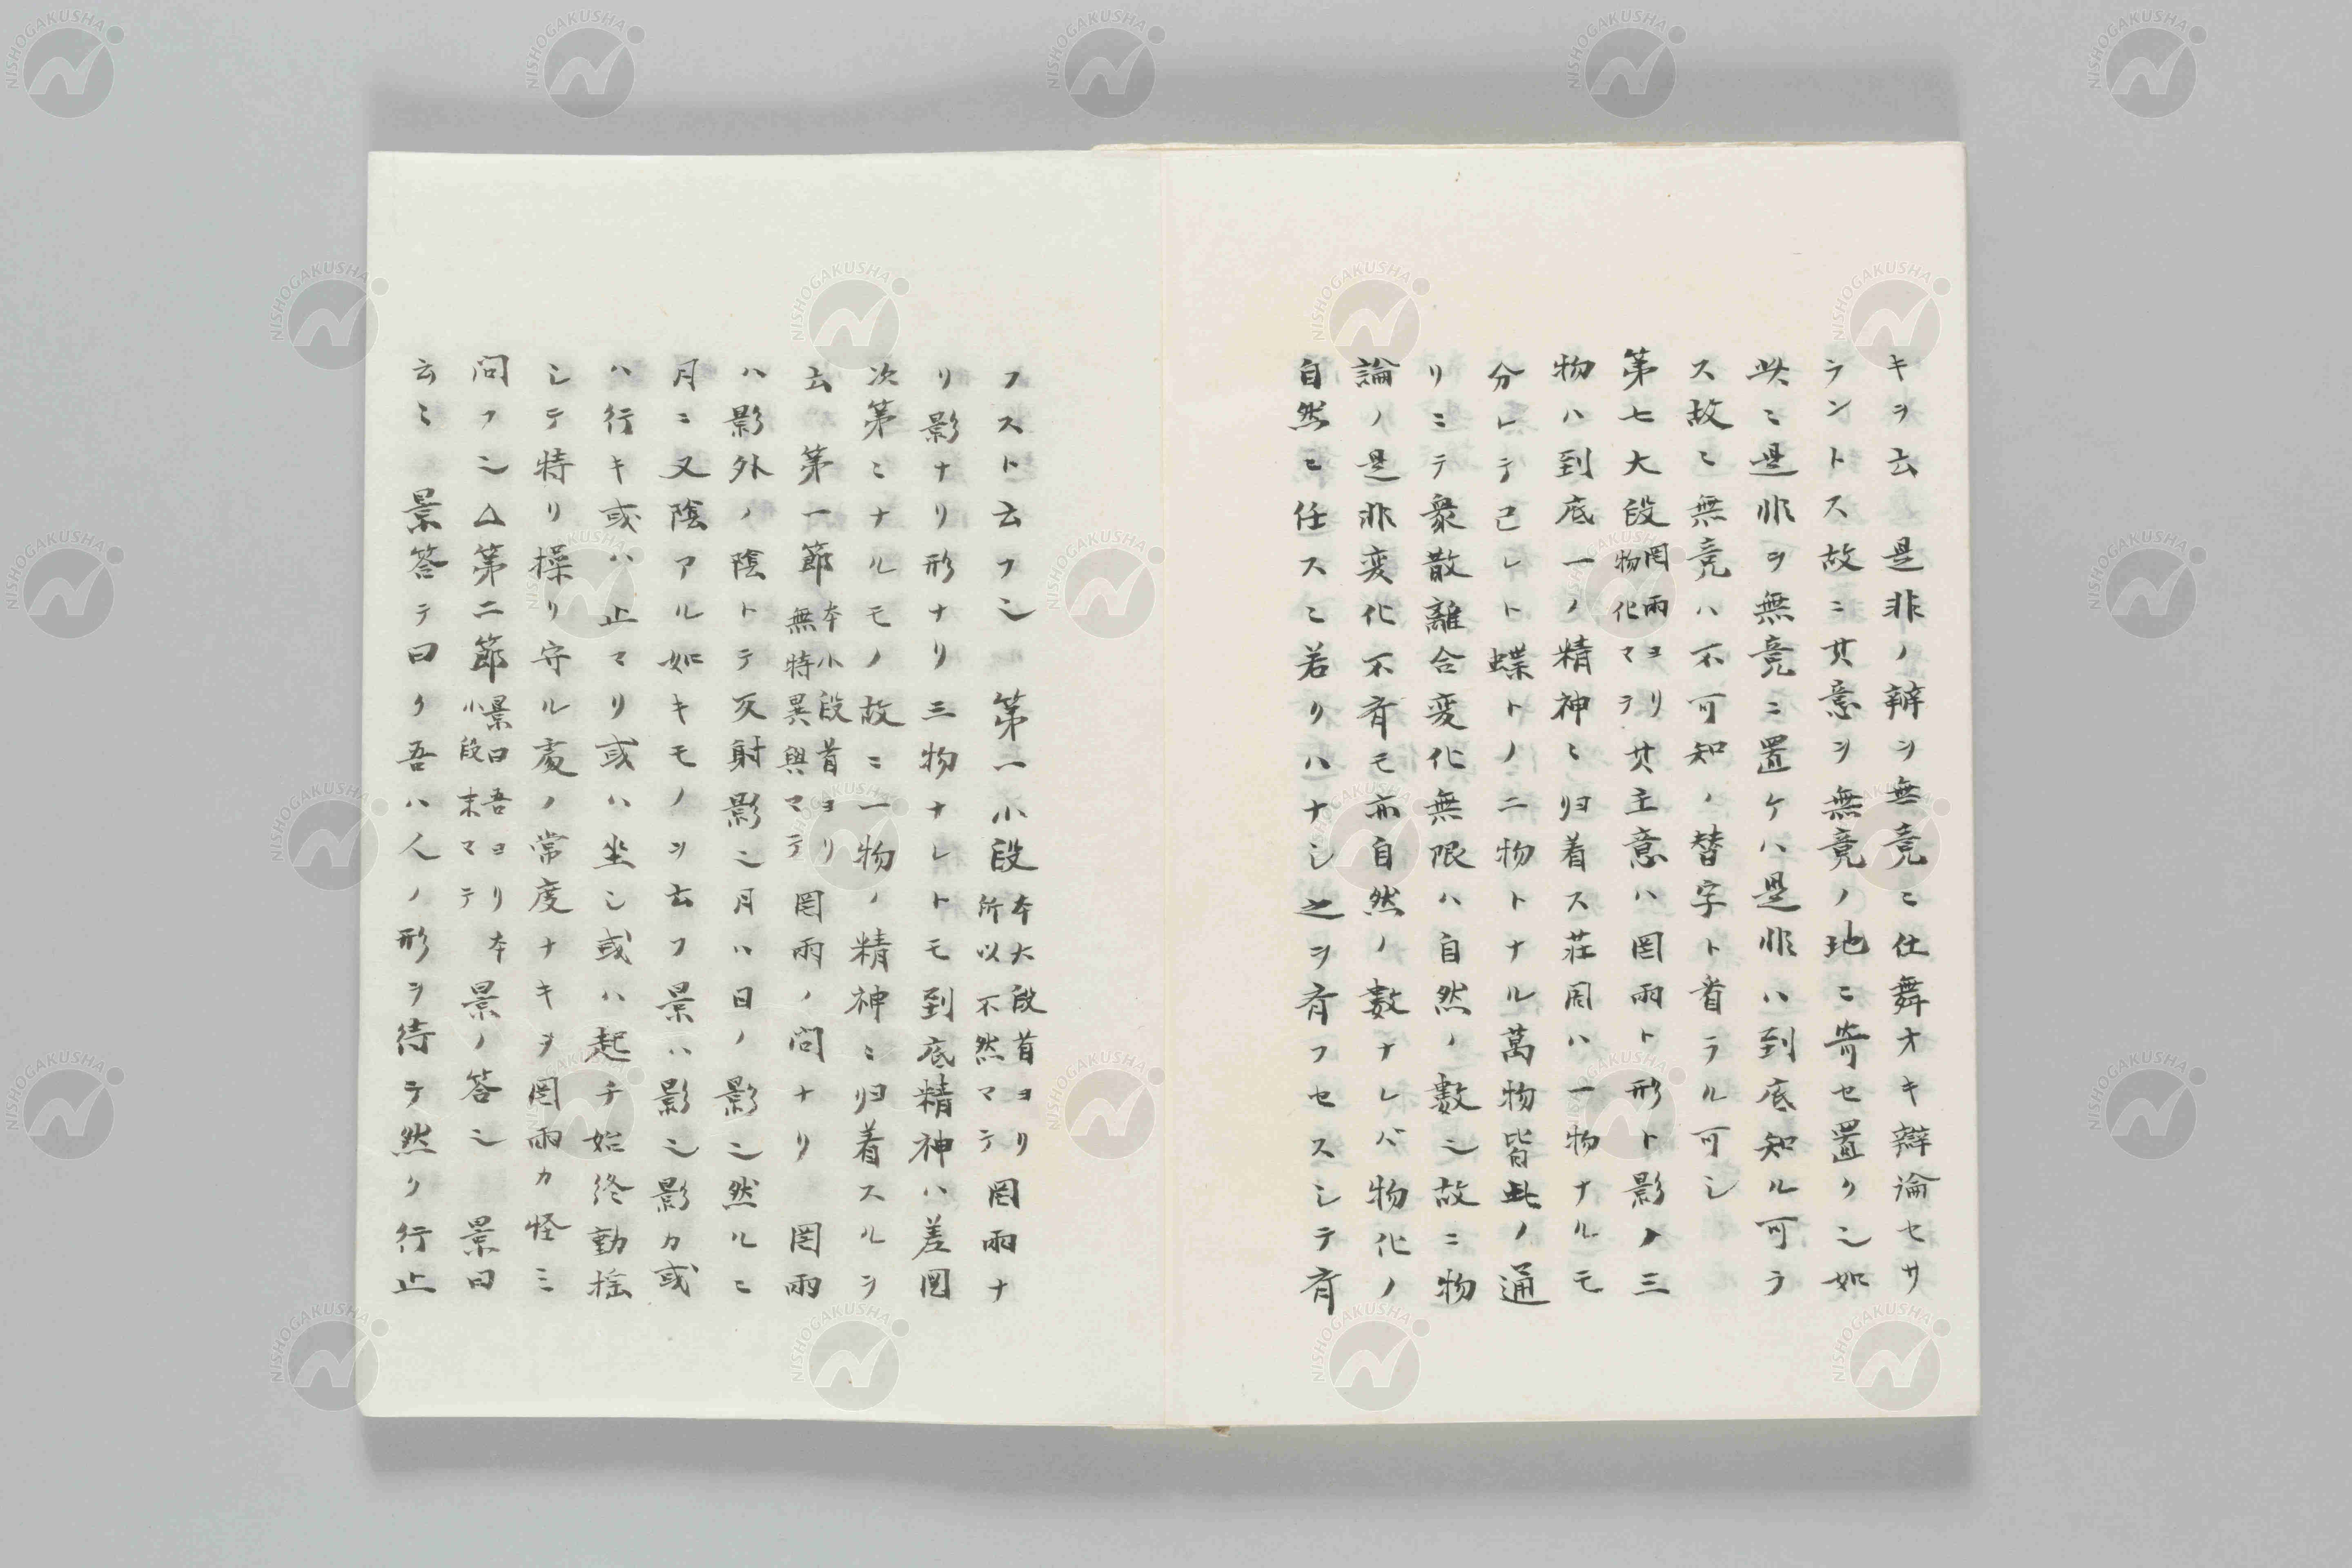 キヲ云 是非ノ辨ヲ無竟ニ仕舞オキ辯論セサ
ラントス故ニ其意ヲ無竟ノ地ニ寄セ置クシ如
此ニ是非ヲ無竟ニ置ケハ是非ハ到底知ル可ラ
ス故ニ無竟ハ不可知ノ替字ト看ラル可シ
第七大段罔兩ヨリ物化マテ其主意ハ罔兩ト形ト影ノ三
物ハ到底一ノ精神ニ归着ス荘周ハ一物ナルモ
分レテ己レト蝶トノ二物トナル萬物皆此ノ通
リニテ衆散離合変化無限ハ自然ノ數シ故ニ物
論ノ是非変化不斉モ亦自然ノ數ナレバ物化ノ
自然ニ任スニ若クハナシ之ヲ斉フセスシテ斉
フスト云フシ 第一小段本大段首ヨリ所以不然マテ罔兩ナ
リ影ナリ形ナリ三物ナレトモ到底精神ハ差図
次第ニナルモノ故ニ一物ノ精神ニ归着スルヲ
云 第一節本小段首ヨリ無特異與マテ罔兩ノ問ナリ 罔兩
ハ影外ノ陰トテ灰射影シ月ハ日ノ影シ然ルニ
月ニ又陰アル如キモノヲ云フ景ハ影シ影カ或
ハ行キ或ハ止マリ或ハ坐シ或ハ起チ始終動揺
シテ特リ操リ守ル処ノ常度ナキヲ罔兩カ怪ミ
問フシ△第二節景曰吾ヨリ本小段末マテ景ノ答シ 景曰
云ミ 景答テ曰ク吾ハ人ノ形ヲ待テ然ク行止